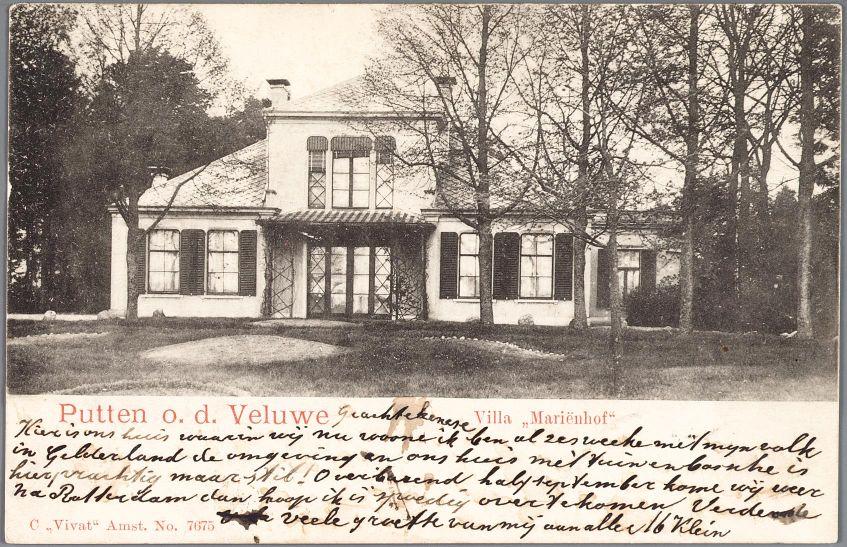 Putten o. d. Veluwe
Villa „Mariënhof“
Geachte kenese
Hier is ons huis waarin wij nu woone ik ben al zes weeke met myn volk
in Gelderland de omgeving en ons huis met tuin en bosche is
hier prachtig maar stil! Overbarend half september kome wy weer
na Rotterdam dan hoop ik is spoedig overtekomen Verder
veele groette van mij aan alle M Klein
C „Vivat“ Amst. No. 7675